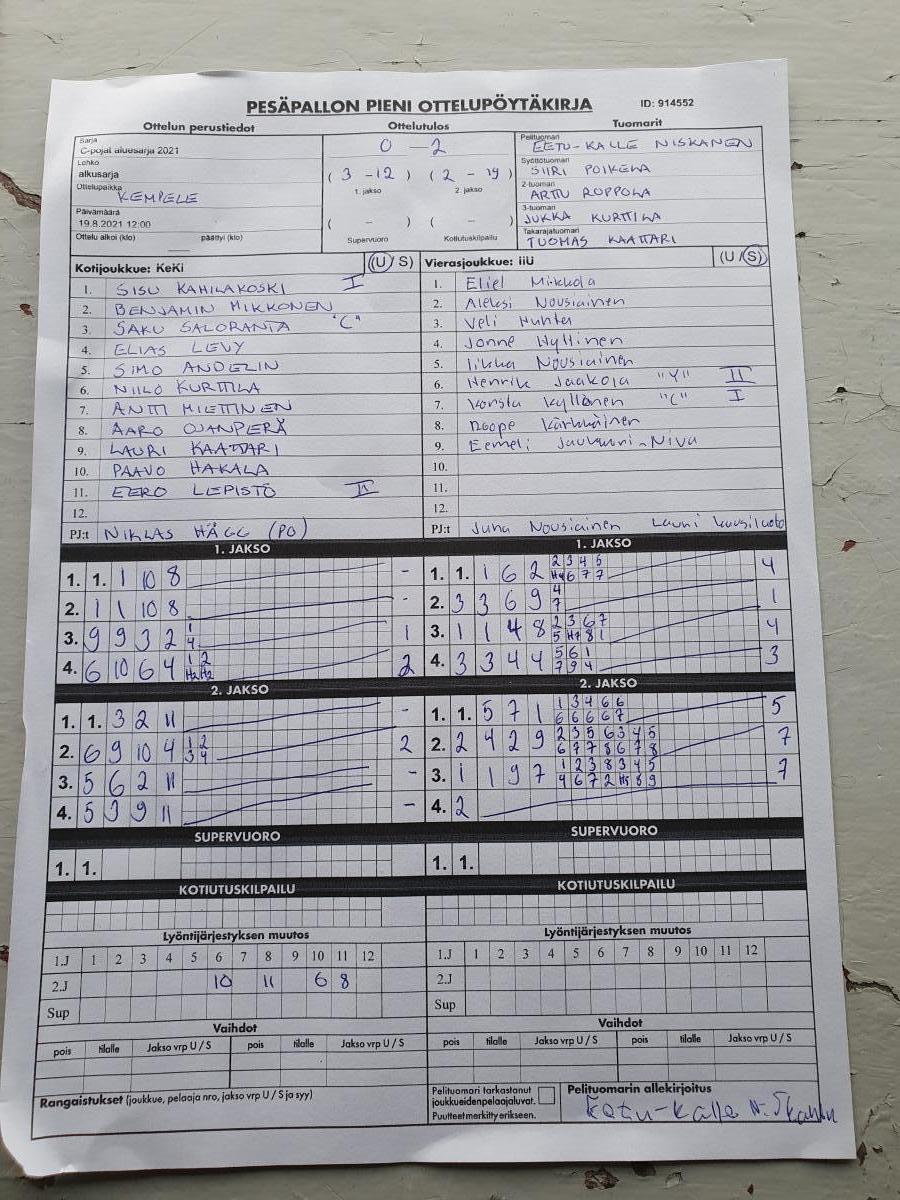 PESÄPALLON PIENI OTTELUPÖYTÄKIRJA ID: 914552
Ottelun perustiedot Ottelutulos Tuomarit
Sarja
C-pojat aluesarja 2021
Lohko
alkusarja
Ottelupaikka
KEMPELE
Päivämäärä
19.8.2021 12:00
Ottelu alkoi (klo) päättyi (klo)
0 - 2
(3 - 12) (2 - 19)
1. jakso 2. jakso
( - ) ( - )
Supervuoro Kotiutuskilpailu
Pelituomari
EETU-KALLE NISKANEN
Syöttötuomari
SIIRI POIKELA
2-tuomari
ARTTU ROPPOLA
3-tuomari
JUKKA KURTTILA
Takarajatuomari
TUOMAS KAATTARI
Kotijoukkue: KeKi (U / S)
1. SISU KAHILAKOSKI I
2. BENJAMIN MIKKONEN
3. SAKU SALORANTA "C"
4. ELIAS LEVY
5. SIMO ANDELIN
6. NIILO KURTTILA
7. ANTTI MIETTINEN
8. AARO OJANPERÄ
9. LAURI KAATTARI
10. PAAVO HAKALA
11. EERO LEPISTÖ II
12.
PJ:t NIKLAS HÄGG (PO)
Vierasjoukkue: iiU (U / S)
1. Eliel Mikkola
2. Aleksi Nousiainen
3. Veli Huhta
4. Jonne Hyttinen
5. Iikka Nousiainen
6. Henrik Jaakola "Y" II
7. Konsta Kyllönen "C" I
8. Roope Kärkkäinen
9. Eemeli -Niva
10.
11.
12.
PJ:t Juha Nousiainen Lauri
1. JAKSO
1. 1. 1 10 8 -
2. 1 1 10 8 -
3. 9 9 3 2 1 4 1
4. 6 10 6 4 1 2 H2 H2 2
2. JAKSO
1. 1. 3 2 11 -
2. 6 9 10 4 1 2 3 4 2
3. 5 6 2 11 -
4. 5 3 9 11 -
SUPERVUORO
1. 1.
KOTIUTUSKILPAILU
Lyöntijärjestyksen muutos
1.J 1 2 3 4 5 6 7 8 9 10 11 12
2.J 10 11 6 8
Sup
Vaihdot
pois tilalle Jakso vrp U / S pois tilalle Jakso vrp U / S
Rangaistukset (joukkue, pelaaja nro, jakso vrp U / S ja syy)
1. JAKSO
1. 1. 1 6 2 2 3 4 5 H4 6 7 7 4
2. 3 3 6 9 4 7 1
3. 1 1 4 8 2 3 6 7 5 H7 8 1 4
4. 3 3 4 4 5 6 1 7 9 4 3
2. JAKSO
1. 1. 5 7 1 1 3 4 6 6 6 6 6 6 7 5
2. 2 4 2 9 2 3 5 6 3 4 5 6 7 7 8 6 7 8 7
3. 1 1 9 7 1 2 3 8 3 4 5 4 6 7 2 H5 8 9 7
4. 2
SUPERVUORO
1. 1.
KOTIUTUSKILPAILU
Lyöntijärjestyksen muutos
1.J 1 2 3 4 5 6 7 8 9 10 11 12
2.J
Sup
Vaihdot
pois tilalle Jakso vrp U / S pois tilalle Jakso vrp U / S
Pelituomari tarkastanut
joukkueidenpelaajaluvat.
Puutteet merkitty erikseen.
Pelituomarin allekirjoitus
Eetu-Kalle Niskanen